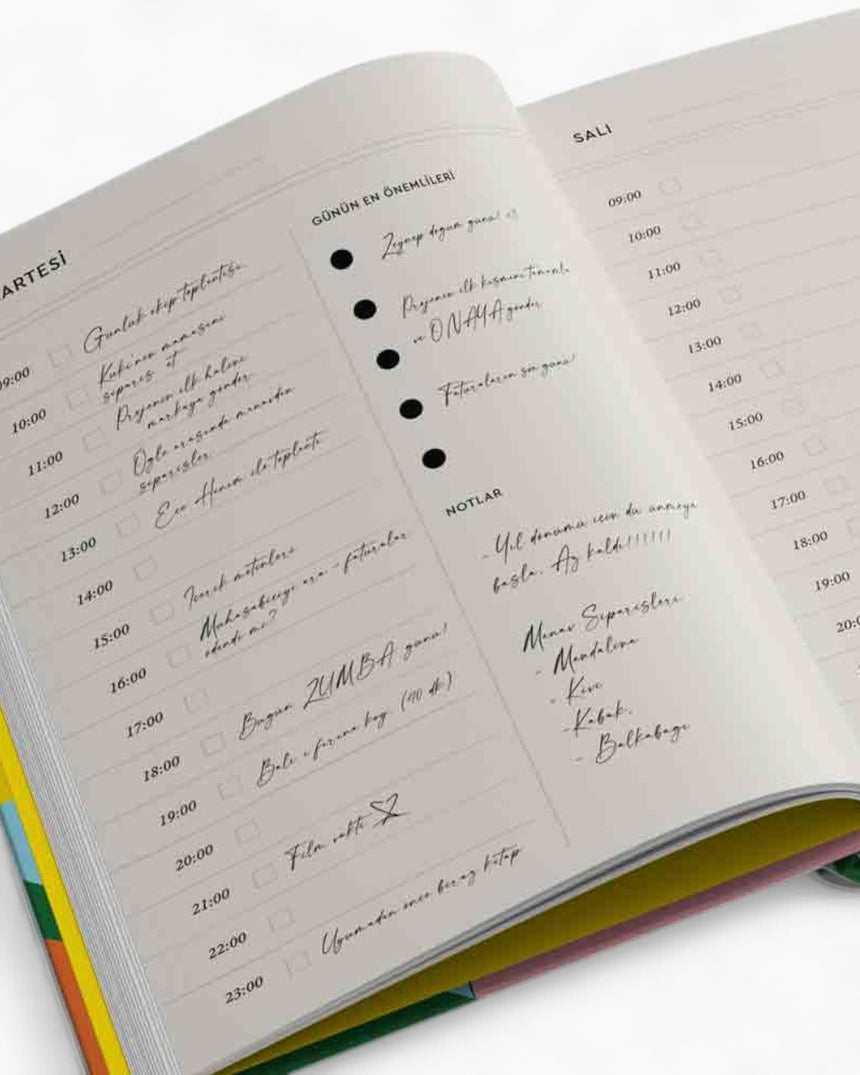 ARTESİ
09:00 Günlük ekip toplantısı
10:00 Kuki'nin mamasını
sipariş et
11:00 Projenin ilk halini
markaya gönder.
12:00 Öğle arasında manavdan
siparişler
13:00 Ece Hanım ile toplantı
14:00
15:00 İçerik metinleri
16:00 Muhasebeciyi ara - faturalar
ödendi mi?
17:00
18:00 Bugün ZUMBA günü!
19:00 Balı fırına koy. (40 dk)
20:00
21:00 Film vakti
22:00
23:00 Uyumadan önce biraz kitap
GÜNÜN EN ÖNEMLİLERİ
Zeynep doğum günü!
Projenin ilk kısmını tamamla
ve ONAYA gönder
Faturaların son günü!
NOTLAR
- Yıl dönümü için düşünmeye
başla. Az kaldı!!!!!!
Manav Siparişleri
- Mandalina
- Kivi
- Kabak.
- Balkabağı
SALI
09:00
10:00
11:00
12:00
13:00
14:00
15:00
16:00
17:00
18:00
19:00
20:0